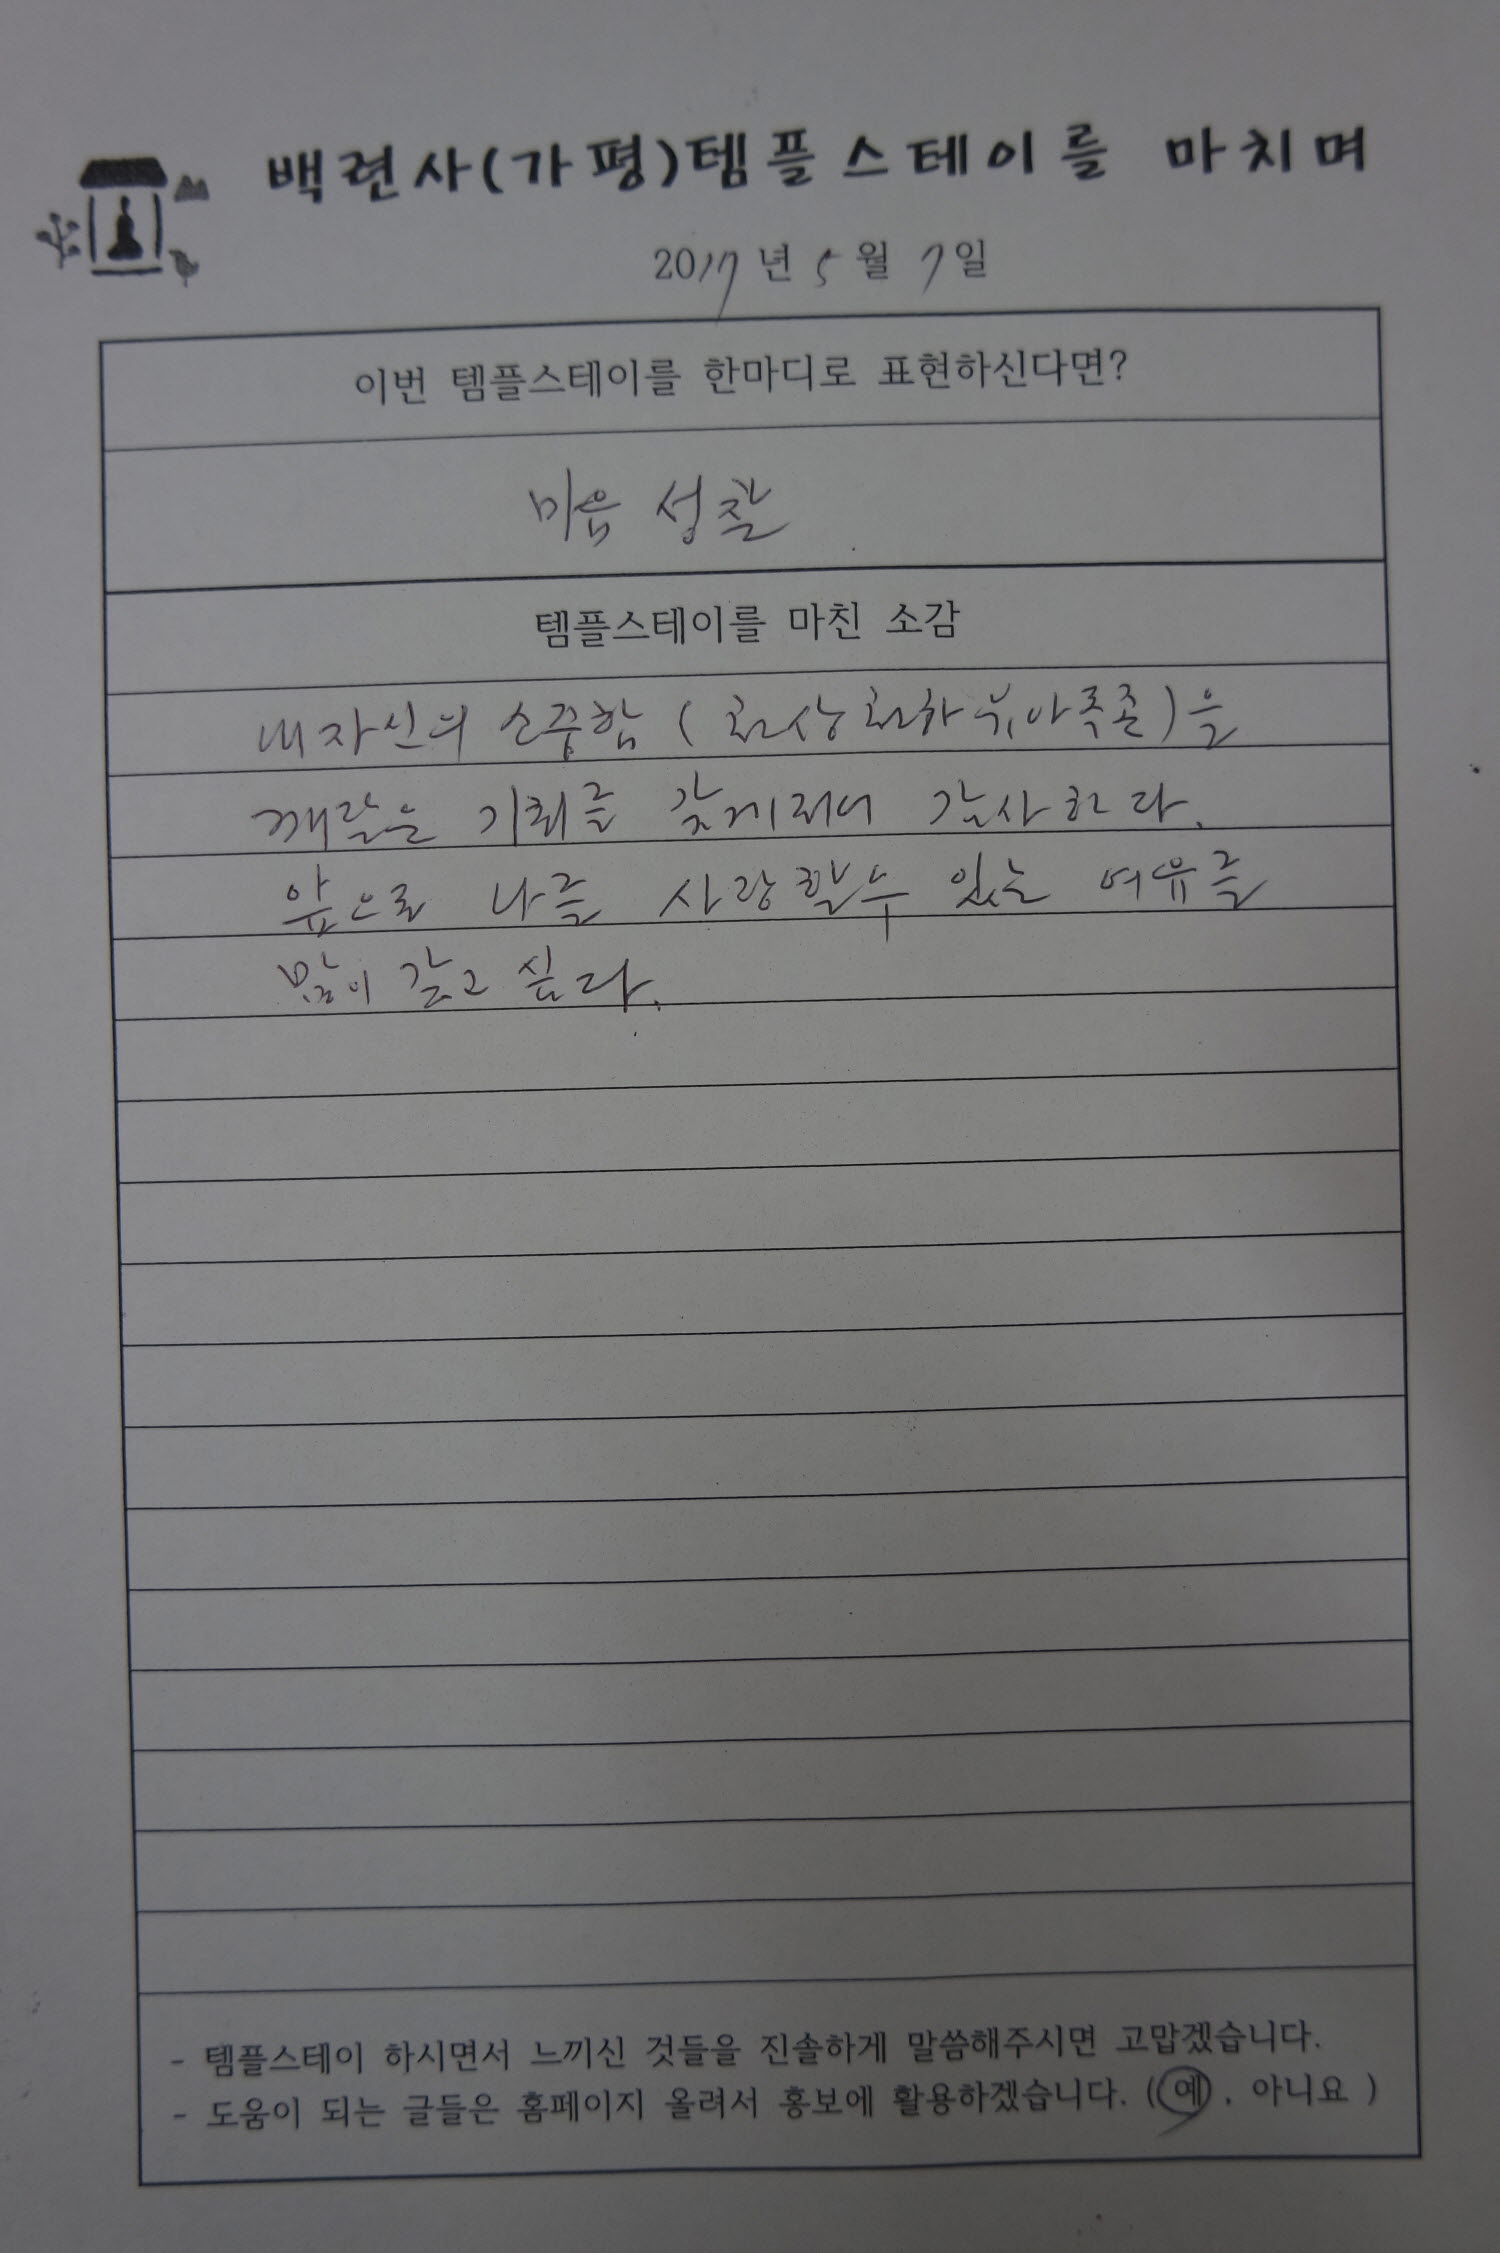 백련사(가평)템플스테이를 마치며
2017년 5월 7일
이번 템플스테이를 한마디로 표현하신다면?
마음 성찰
템플스테이를 마친 소감
내자신의 소중함 (천상천하유아독존)을
깨달은 기회를 갖게되어 감사하다.
앞으로 나를 사랑할수 있는 여유를
많이 갖고 싶다.
- 템플스테이 하시면서 느끼신 것들을 진솔하게 말씀해주시면 고맙겠습니다.
- 도움이 되는 글들은 홈페이지 올려서 홍보에 활용하겠습니다. (예, 아니요 )